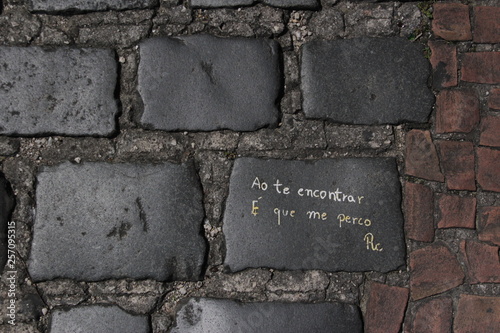 Ao te encontrar
É que me perco
Ric
257095315